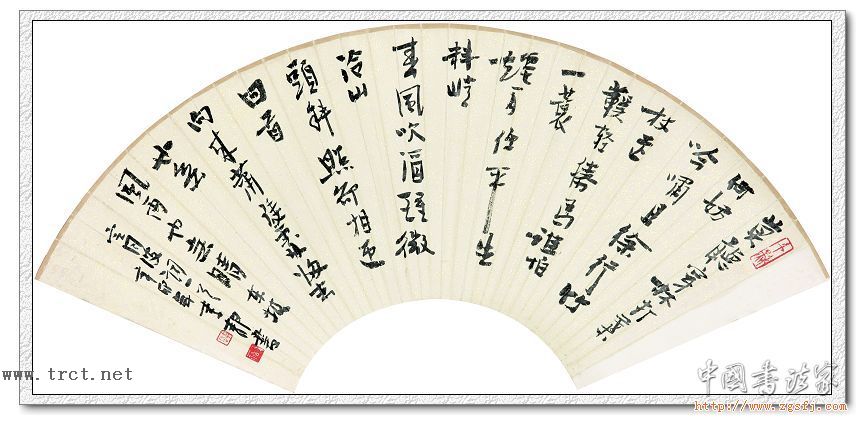 莫聽穿林打葉
何妨
吟嘯且徐行竹
杖芒
鞋輕勝馬誰怕
一蓑
煙雨任平生
料峭
春風吹酒醒微
冷山
頭斜照却相迎
回首
向來蕭瑟處歸去
也無
風雨也無晴 東坡
定風波詞
www.trct.net
中国书法家
http://www.zgsfj.com